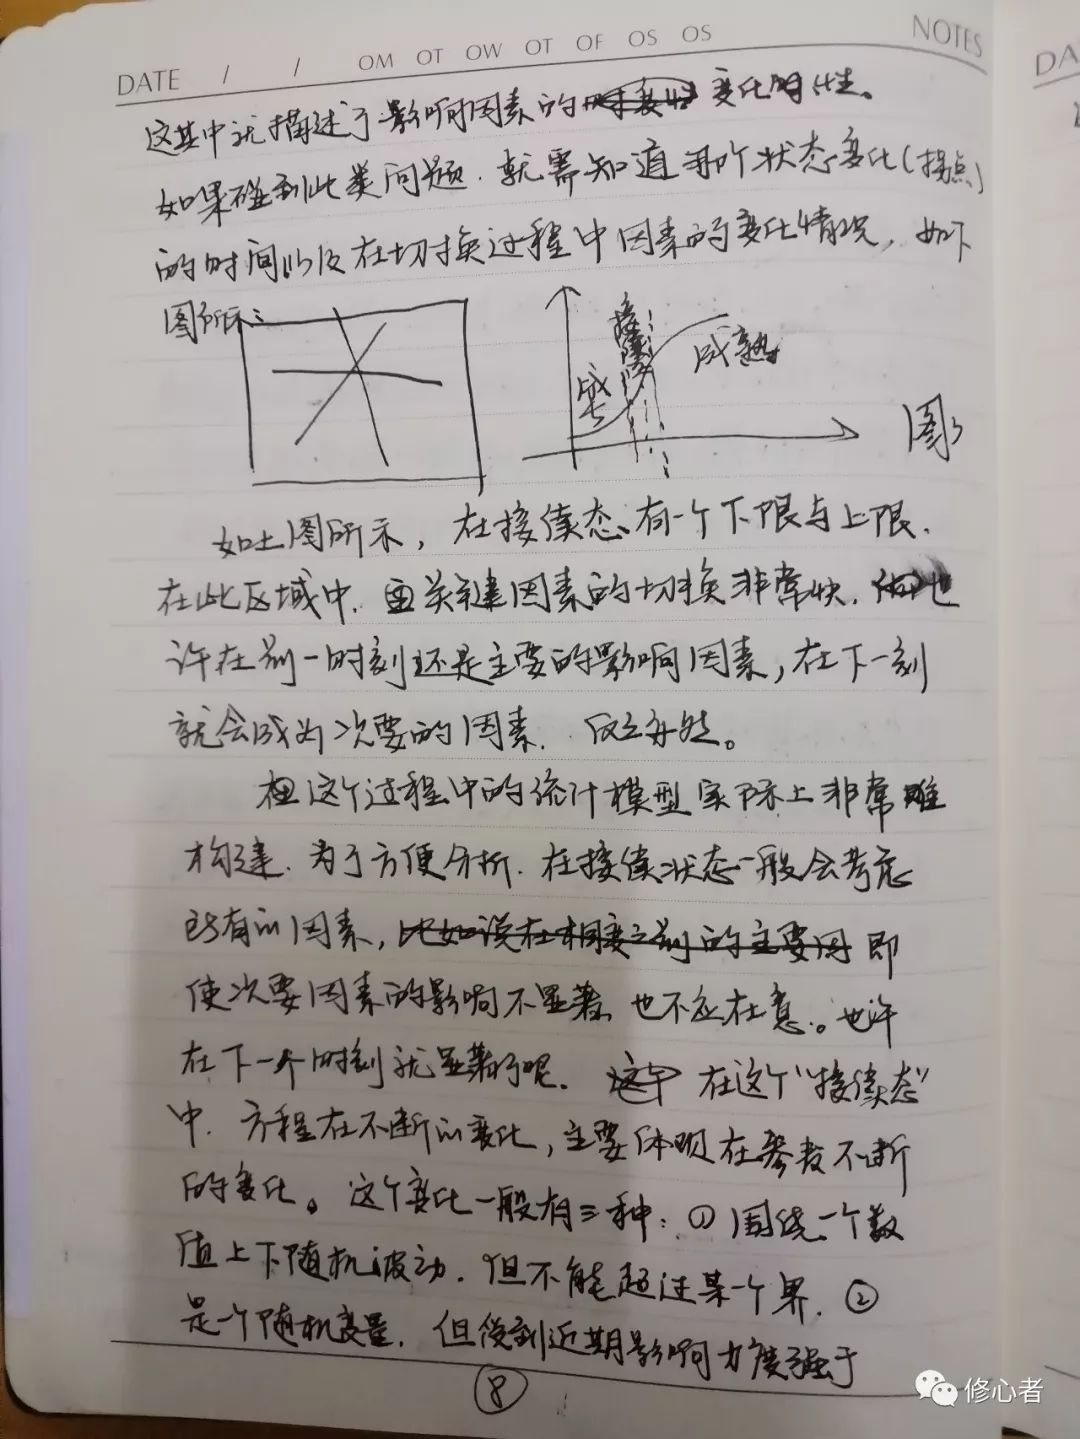 DATE / / OM OT OW OT OF OS OS NOTES
这其中就描述了影响因素的变化特性。
如果碰到此类问题，就需知道那个状态变化(拐点)
的时间以及在切换过程中因素的变化情况，如下
图所示：
成长
接续
成熟
图3
如上图所示，在接续态、有一个下限与上限，
在此区域中，关键因素的切换非常快，也
许在前一时刻还是主要的影响因素，在下一刻
就会成为次要的因素，反之亦然。
这个过程中的统计模型实际上非常难
构建，为了方便分析，在接续状态一般会考虑
所有的因素，比如说在相变之前的主要因 即
使次要因素的影响不显著，也不应在意。也许
在下一个时刻就显著了呢。在这个“接续态”
中，方程在不断的变化，主要体现在参数不断
的变化。这个变化一般有三种：①围绕一个数
值上下随机波动，但不能超过某一个界，②
是一个随机变量，但受到近期影响力度强于
8
修心者
DA